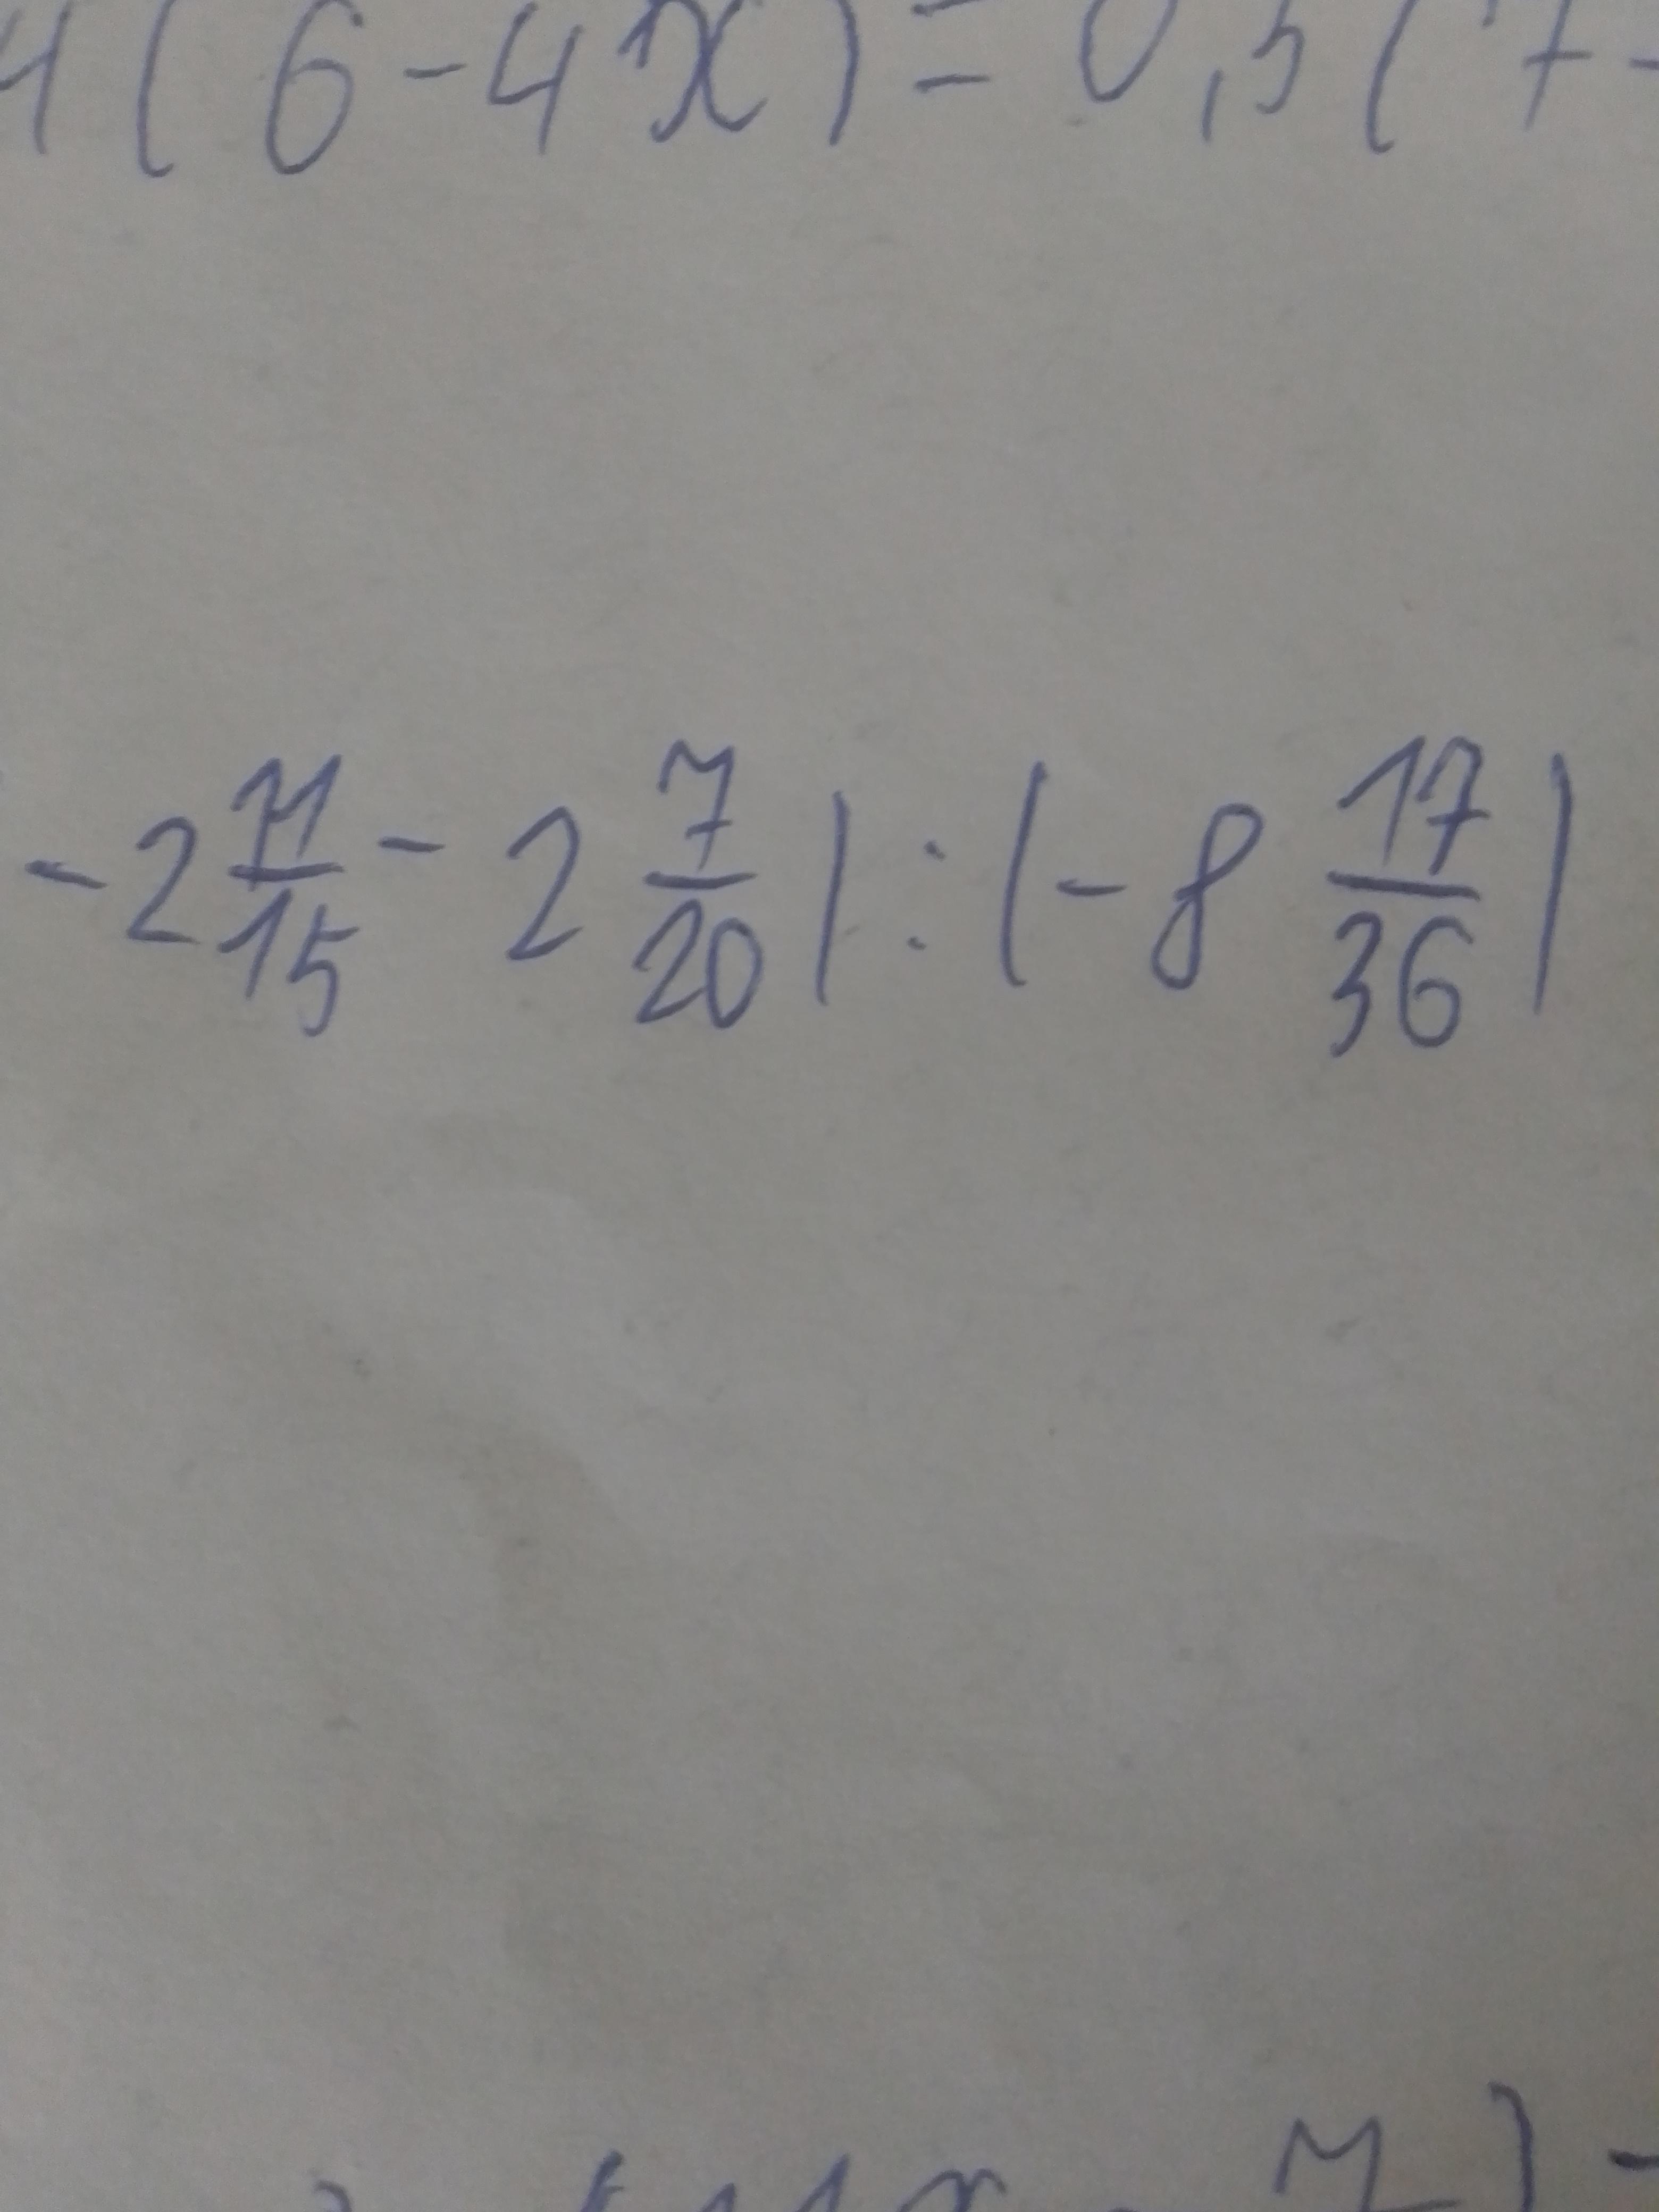 4(6-4x)=0,5(7-
-2 11/15 - 2 7/20 | : |-8 17/36|